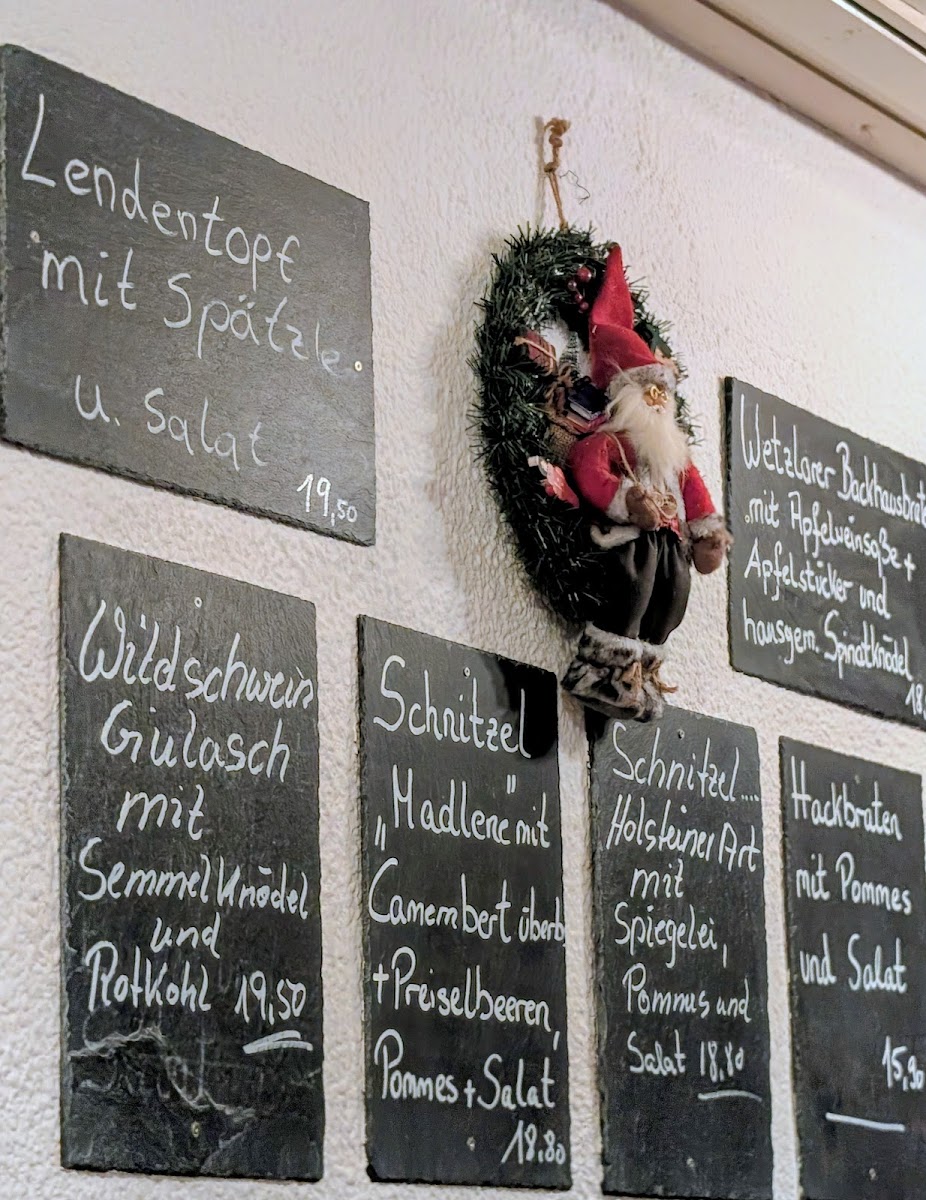 Lendentopf
mit Spätzle
u. Salat
19,50
Wetzlarer
mit Apfelweinsoße +
Apfelstücker und
hausgem. Spinatknödel
Wildschwein
Gulasch
mit
Semmelknödel
und
Rotkohl 19,50
Schnitzel
„Madlene" mit
Camembert überb.
+ Preiselbeeren,
Pommes + Salat
18,80
Schnitzel....
Holsteiner Art
mit
Spiegelei,
Pommus und
Salat 18,80
Hackbraten
mit Pommes
und Salat
15,90